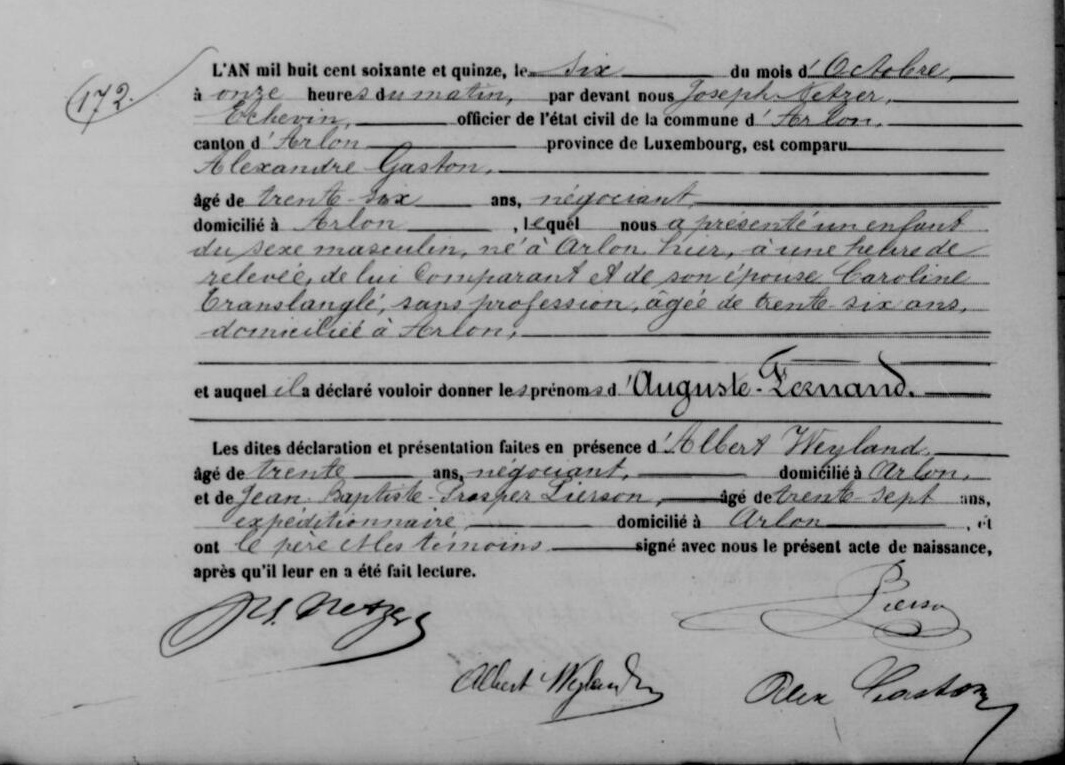 172.
L'AN mil huit cent soixante et quinze, le six du mois d'Octobre,
à onze heures du matin, par devant nous Joseph Netzer,
Echevin, officier de l'état civil de la commune d'Arlon,
canton d'Arlon province de Luxembourg, est comparu
Alexandre Gaston,
âgé de trente-six ans, négociant,
domicilié à Arlon, lequel nous a présenté un enfant
du sexe masculin, né à Arlon hier, à une heure de
relevée, de lui Comparant et de son épouse Caroline
Translanglé, sans profession, âgée de trente-six ans,
domiciliée à Arlon;
et auquel il a déclaré vouloir donner les prénoms d'Auguste-Fernand.
Les dites déclaration et présentation faites en présence d'Albert Weyland,
âgé de trente ans, négociant, domicilié à Arlon,
et de Jean-Baptiste-Prosper Pierson, âgé de trente-sept ans,
expéditionnaire, domicilié à Arlon, et
ont le père et les témoins signé avec nous le présent acte de naissance,
après qu'il leur en a été fait lecture.
Netzer
Pierson
Albert Weyland
Alex Gaston